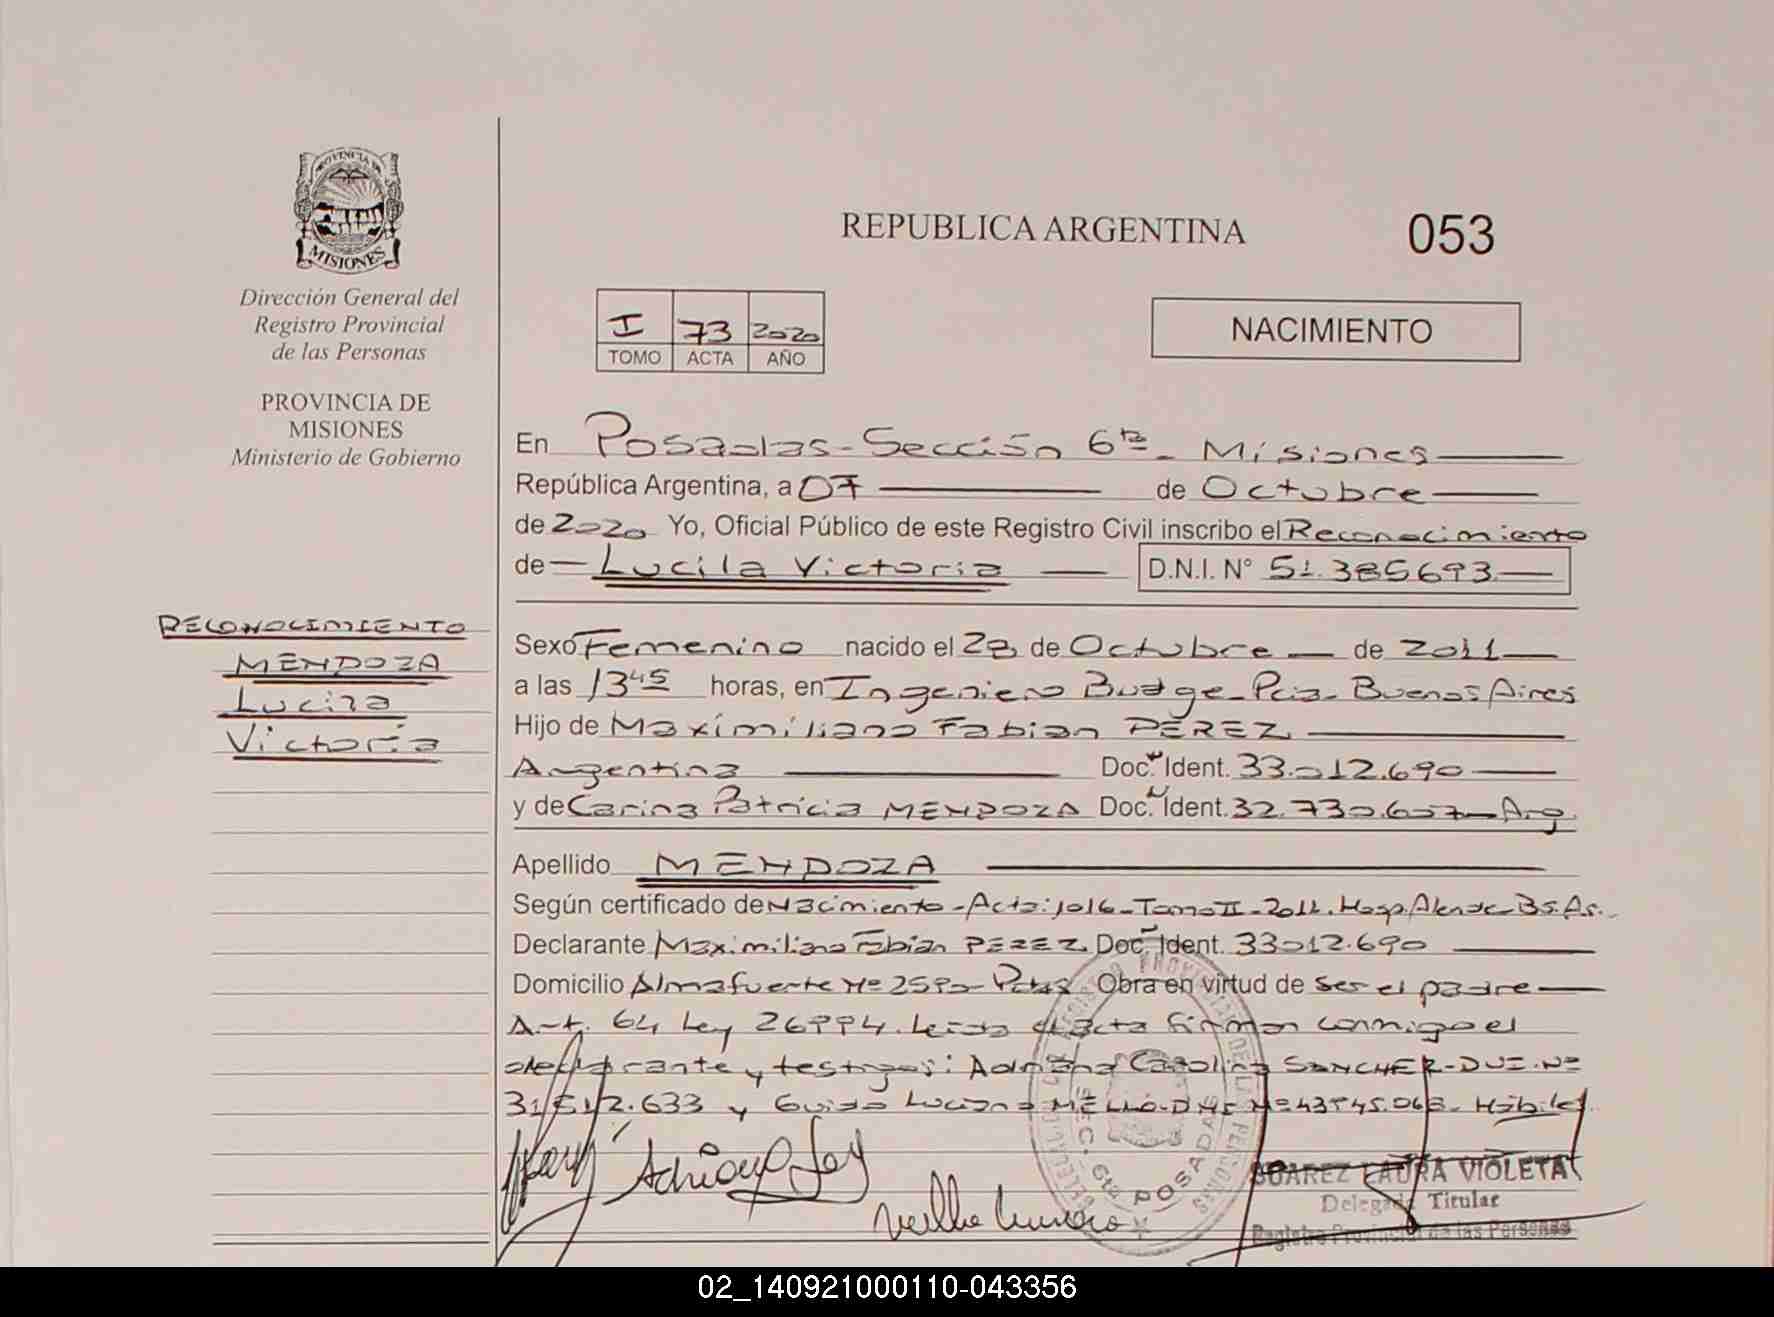 PROVINCIA DE
MISIONES
Dirección General del
Registro Provincial
de las Personas
PROVINCIA DE
MISIONES
Ministerio de Gobierno
RECONOCIMIENTO
MENDOZA
Lucila
Victoria
REPUBLICA ARGENTINA
053
I 73 2020
TOMO ACTA AÑO
NACIMIENTO
En Posadas - Sección 6ta - Misiones
República Argentina, a 07 de Octubre
de 2020 Yo, Oficial Público de este Registro Civil inscribo el Reconocimiento
de Lucila Victoria D.N.I. N° 51.385693
Sexo Femenino nacido el 28 de Octubre de 2011
a las 13 45 horas, en Ingeniero Budge - Pcia - Buenos Aires
Hijo de Maximiliano Fabian PEREZ
Argentina Doc. Ident. 33.012.690
y de Carina Patricia MENDOZA Doc. Ident. 32.730.607 - Arg.
Apellido MENDOZA
Según certificado de Nacimiento - Acta: 1016 - Tomo II - 2011. Hosp. Bs. As.
Declarante Maximiliano Fabian PEREZ Doc. Ident. 33012.690
Domicilio Almafuerte Nº 2590 - Pdas Obra en virtud de ser el padre
Art. 64 Ley 26994. Leida el acta firman conmigo el
declarante y testigos: Adriana Carolina DNI. Nº
31.512.633 y Guido Luciano MELLO - DNI Nº 43 - Hábiles
SUAREZ LAURA VIOLETA
Delegada Titular
Registro Provincial de las Personas
SEC. 6ta POSADAS
02_140921000110-043356